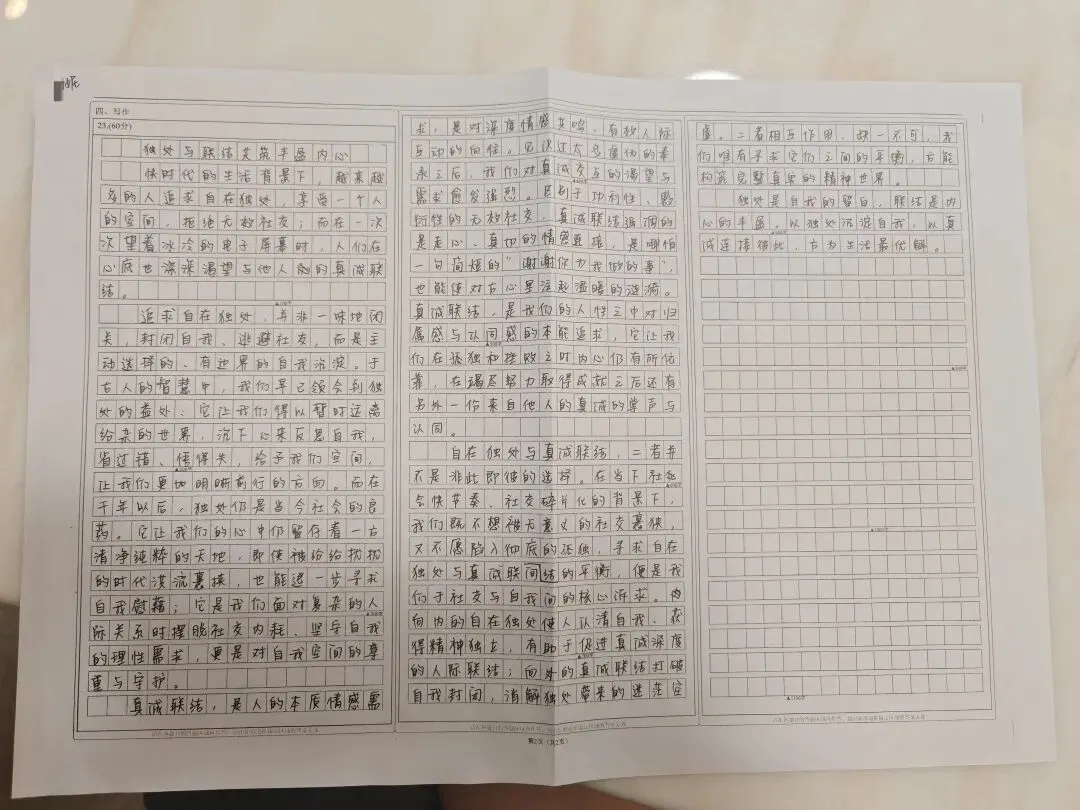 四、写作
23.(60分)
独处与联结共筑丰盈内心
快时代的生活背景下，越来越
多的人追求自在独处，享受一个人
的空间，拒绝无效社交；而在一次
次望着冰冷的电子屏幕时，人们在
心底也深深渴望与他人的真诚联
结。
追求自在独处，并非一味地闭
关，封闭自我、逃避社交，而是主
动选择的、有边界的自我沉淀。于
古人的智慧中，我们早已领会到独
处的益处：它让我们得以暂时远离
纷杂的世界，沉下心来反思自我，
省过错、悟得失，给予我们空间，
让我们更加明晰前行的方向。而在
千年以后，独处仍是当今社会的良
药。它让我们的心中仍留存着一方
清净纯粹的天地，即使被纷纷扰扰
的时代洪流裹挟，也能退一步寻求
自我慰藉；它是我们面对复杂的人
际关系时摆脱社交内耗、坚守自我
的理性需求，更是对自我空间的尊
重与守护。
真诚联结，是人的本质情感需
求，是对深度情感共鸣，有效人际
互动的向往。见决过太多虚伪的奉
承之后，我们对真诚交互的渴望与
需求愈发强烈。区别于功利性、敷
衍性的无效社交，真诚联结强调的
是走心、真切的情感连接，是哪怕
一句简短的“谢谢你为我做的事”，
也能使对方心里泛起温暖的涟漪。
真诚联结，是我们的人性之中对归
属感与认同感的本能追求，它让我
们在孤独和挫败之时内心仍有所依
靠，在竭尽努力取得成就之后还有
另外一份来自他人的真诚的掌声与
认同。
自在独处与真诚联结，二者并
不是非此即彼的选择。在当下社
会快节奏、社交碎片化的背景下，
我们既不想被无意义的社交裹挟，
又不愿陷入彻底的孤独，寻求自在
独处与真诚联结的平衡，便是我
们于社交与自我间的核心诉求。
向内的自在独处使人认清自我、获
得精神独立，有助于促进真诚深度
的人际联结；向外的真诚联结打破
自我封闭，消解独处带来的迷茫空
虚。二者相互作用，缺一不可，我
们唯有寻求它们之间的平衡，方能
构筑完整真实的精神世界。
独处是自我的留白，联结是内
心的丰盈。以独处沉淀自我，以真
诚连接彼此，方为生活最优解。
第2页（共2页）